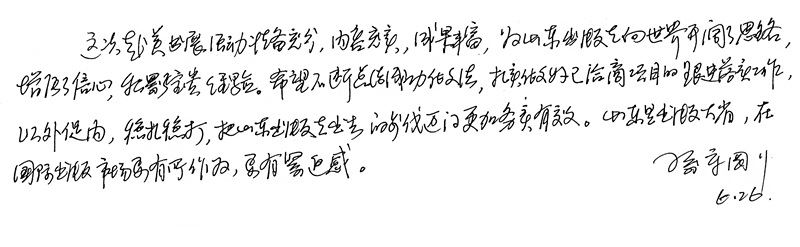 这次赴美出展活动准备充分，内容充实，成果丰富，为山东出版走向世界开阔了思路，
增强了信心，积累了宝贵经验。希望不断总结成功做法，扎实做好已洽商项目的跟进落实工作，
以外促内，稳扎稳打，把山东出版走出去的步伐迈的更加务实有效。山东是出版大省，在
国际出版市场要有所作为，要有紧迫感。
6.26.